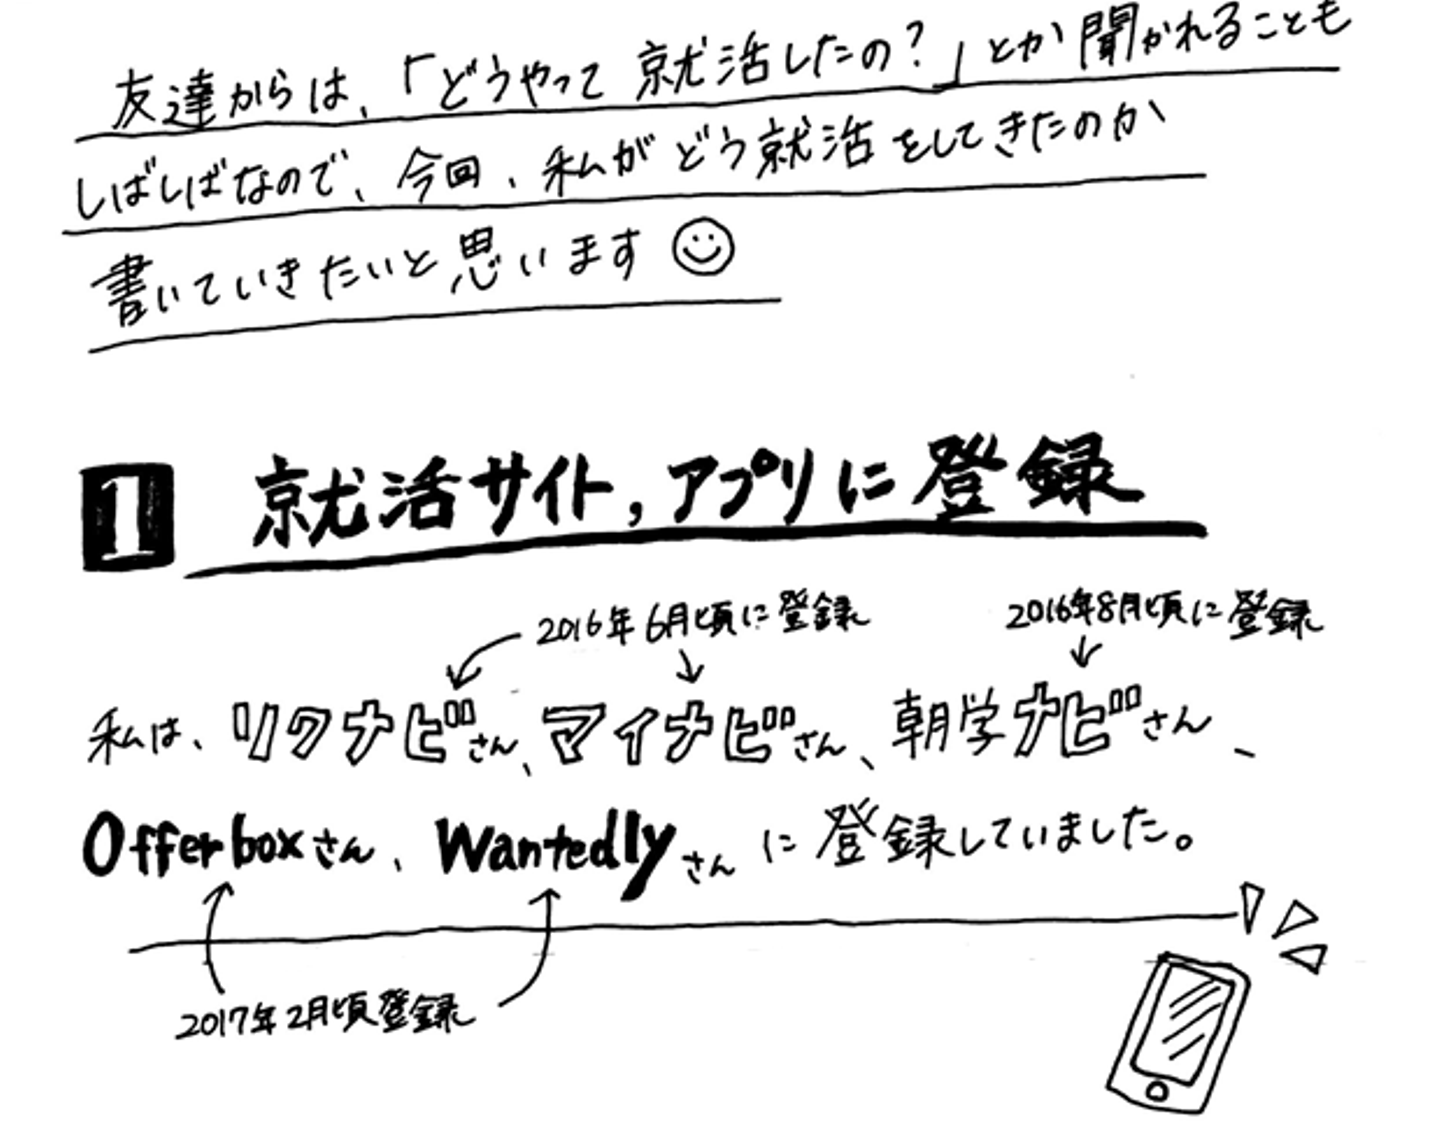 友達からは、「どうやって就活したの?」とか聞かれることも
しばしばなので、今回、私がどう就活をしてきたのか
書いていきたいと思います
1 就活サイト,アプリに登録
2016年6月頃に登録
2016年8月頃に登録
私は、リクナビさん、マイナビさん、朝学ナビさん、
Offerboxさん、Wantedlyさんに登録していました。
2017年2月頃登録